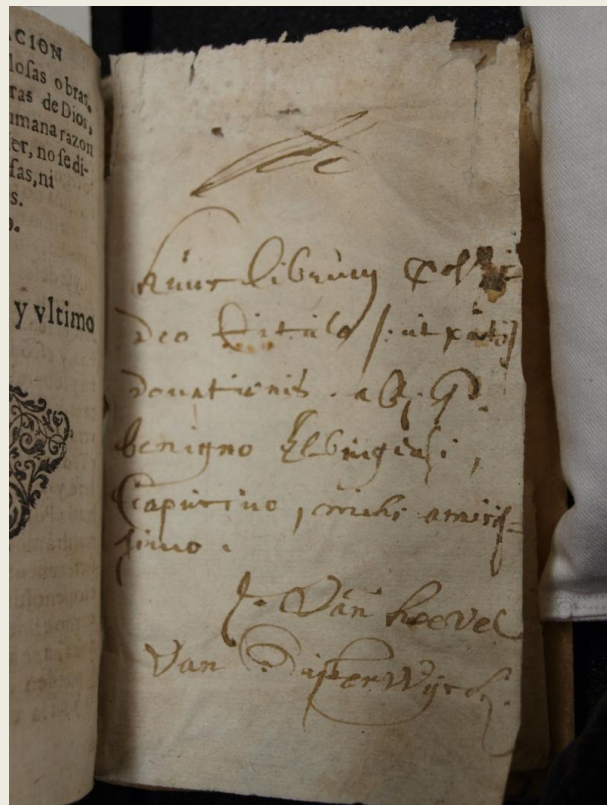 ACION
losas obras,
ras de Dios,
umana razon
er, no se di-
sas, ni
s.
o.
y vltimo
hunc librum possi
deo titulo /: ut patis
donationis. a R. P.
benigno Elbingensi,
Capucino, mihi amicis=
simo.
J. Van hoevel
Van